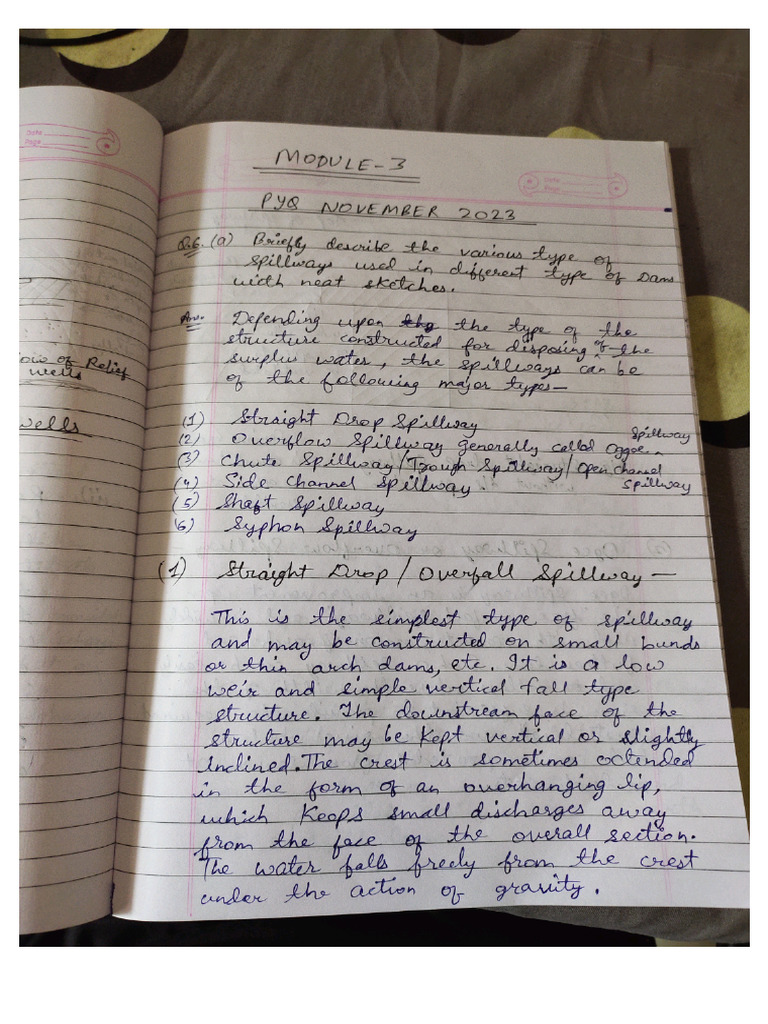 Date
Page
ow of Relief
wells
wells
Date
Page
MODULE-3
PYQ NOVEMBER 2023
Q.6. (a) Briefly describe the various type of
Spillways used in different type of Dams
with neat sketches.
Ans. Depending upon thg the type of the
structure constructed for disposing of the
surplus water, the spillways can be
of the following major types—
(1) Straight Drop Spillway
(2) Overflow Spillway generally called Oggee Spillway
(3) Chute Spillway/Trough Spillway/Open Channel Spillway
(4) Side Channel Spillway.
(5) Shaft Spillway
(6) Syphon Spillway
(1) Straight Drop / Overfall Spillway —
This is the simplest type of spillway
and may be constructed on small bunds
or thin arch dams, etc. It is a low
weir and simple vertical fall type
structure. The downstream face of the
structure may be kept vertical or slightly
inclined. The crest is sometimes extended
in the form of an overhanging lip,
which keeps small discharges away
from the face of the overall section.
The water falls freely from the crest
under the action of gravity.